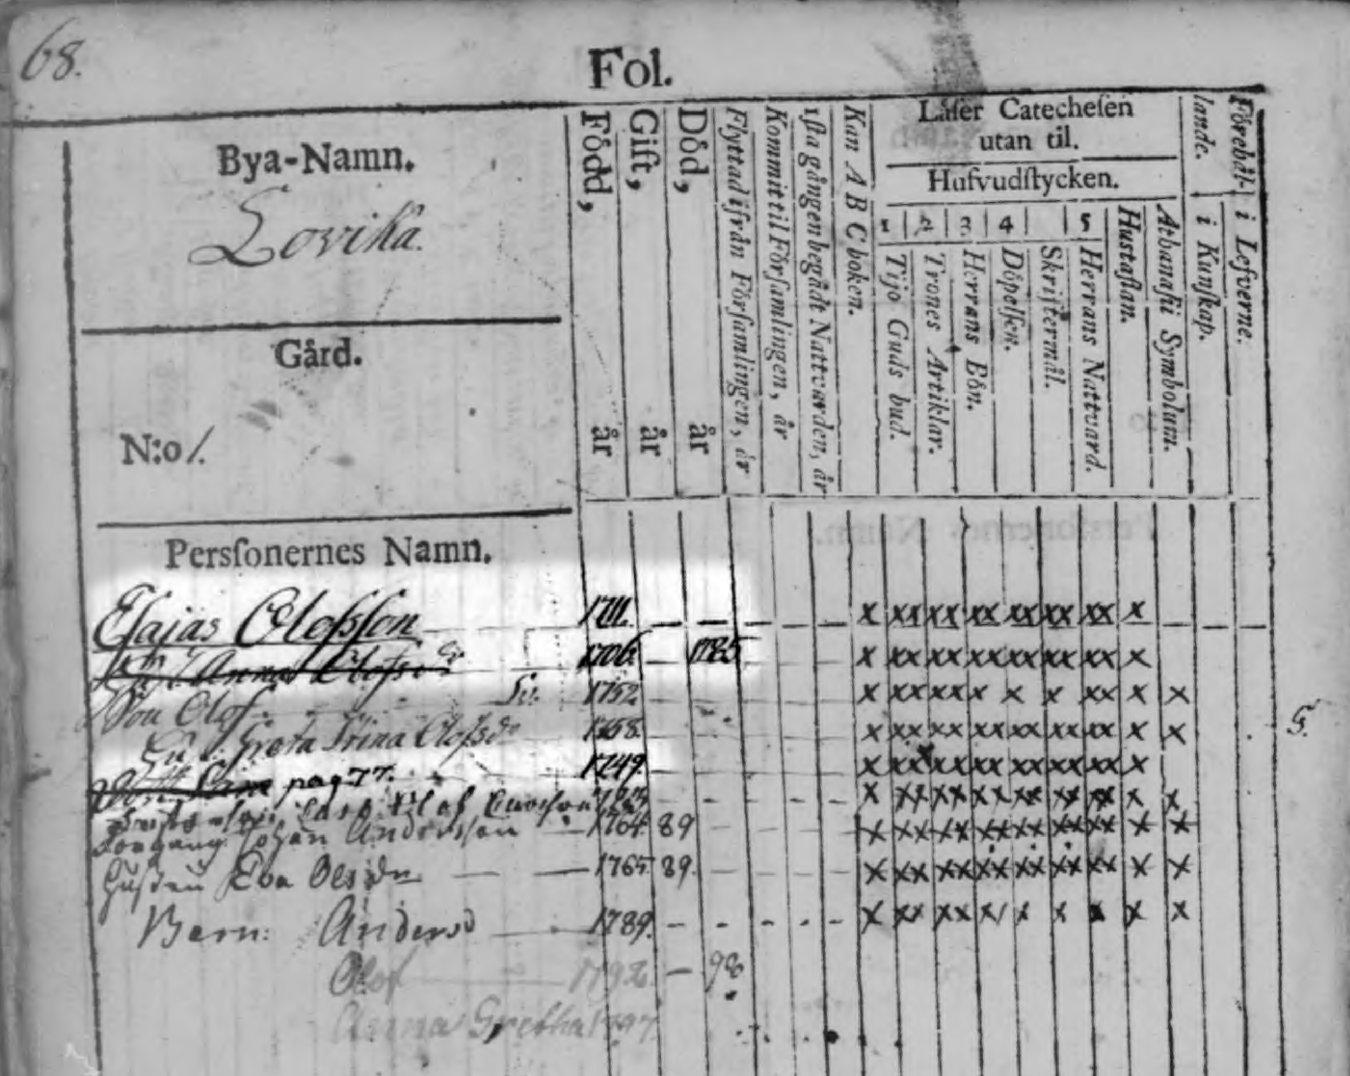 68.
Fol.
Bya-Namn.
Lovika.
Gård.
N:o 1.
Född, år
Gift, år
Död, år
Flyttad ifrån Församlingen, år
Kommit til Församlingen, år
1sta gången begådt Nattvarden, år
Kan A B C boken.
Läser Catechesen
utan til.
Hufvudstycken.
1 2 3 4 5
Tijo Guds bud.
Trones Artiklar.
Herrans Bön.
Döpelsen.
Skriftermål.
Herrans Nattvard.
Hustaflan.
Athanasii Symbolum.
i Kunskap.
i Lefverne.
Förehållande.
Personernes Namn.
Esaias Olofsson 1711. x xx xx xx xx xx xx x
Anna Olofsdr 1706. 1785 x xx xx xx xx xx xx x
Son Olof 1752 x xx xx x x x xx x x
Hu. Greta Stina Olofsdr 1758. x xx xx xx xx xx xx x x 5.
Lars pag 77. 1749. x xx xx xx xx xx xx x
Olof x xx xx xx xx xx xx x x
Johan Andersson 1764. 89 x xx xx xx xx xx xx x x
Hustru Eva Olsdr 1765 89. x xx xx xx xx xx xx x x
Barn: Anders 1789. x xx xx x x x x x x
Olof 1792. 98
Anna Gretha 1797.